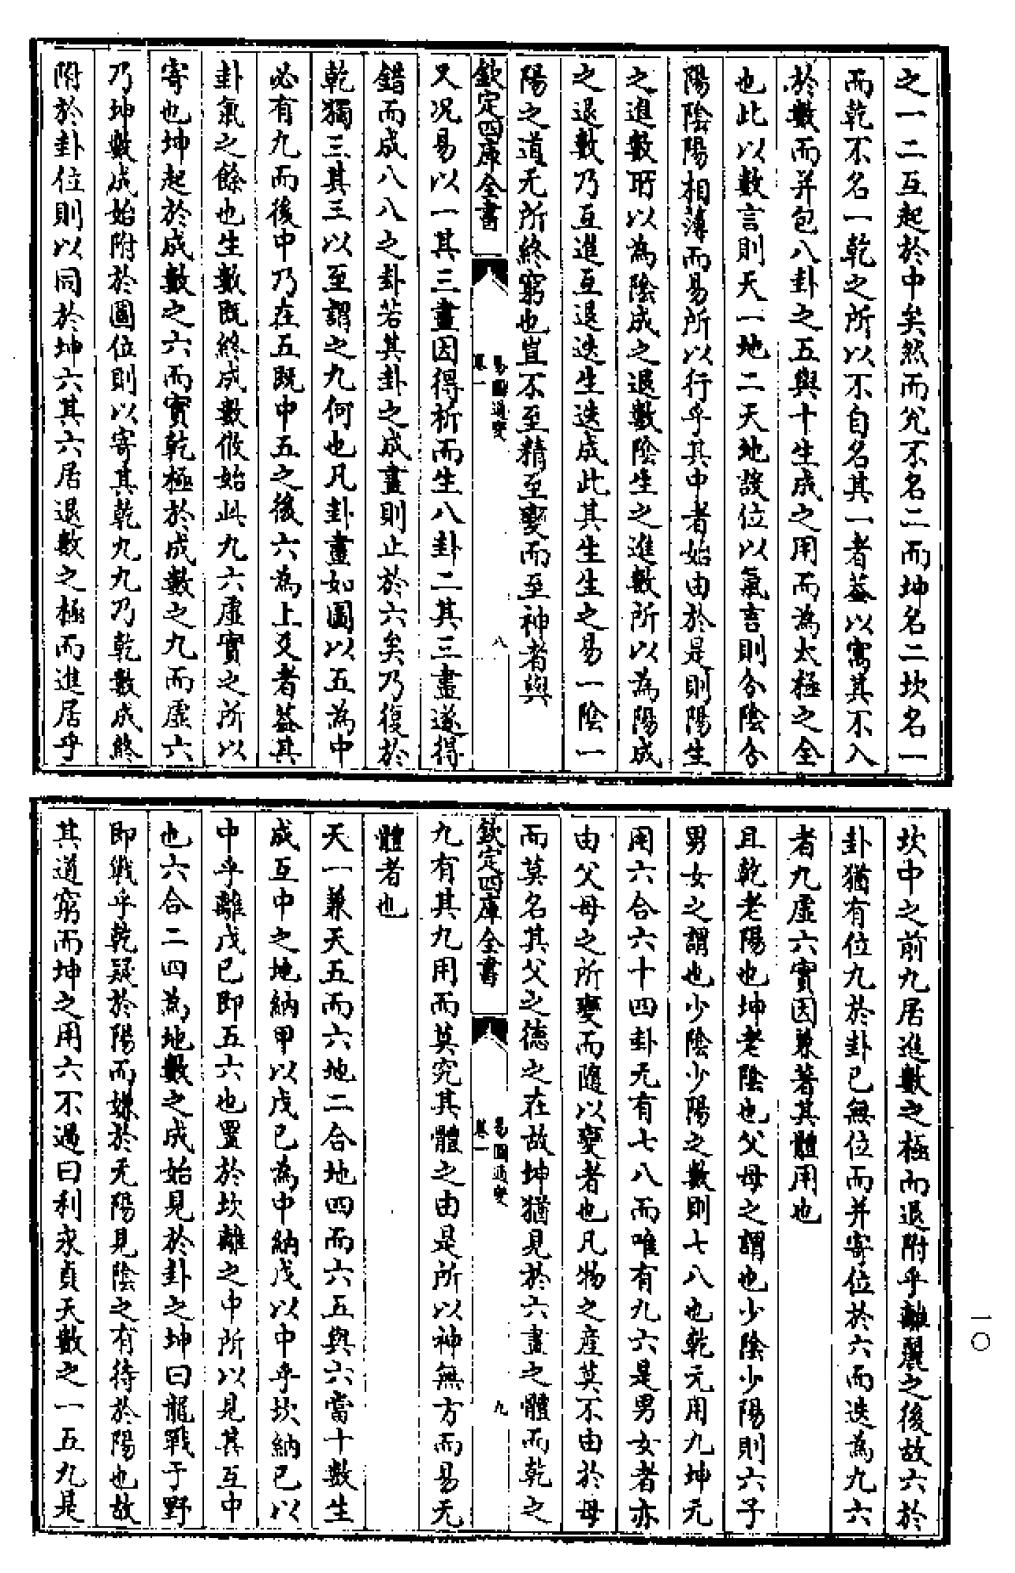 之一二互起於中矣然而兊不名二而坤名二坎名一
而乾不名一乾之所以不自名其一者葢以寓其不入
於數而并包八卦之五與十生成之用而為太極之全
也此以數言則天一地二天地設位以氣言則分陰分
陽陰陽相薄而易所以行乎其中者始由於是則陽生
之進數所以為陰成之退數陰生之進數所以為陽成
之退數乃互進互退迭生迭成此其生生之易一陰一
陽之道无所終窮也豈不至精至變而至神者與
欽定四庫全書
易圖通變
卷一
八
又况易以一其三畫因得析而生八卦二其三畫遂得
錯而成八八之卦若其卦之成畫則止於六矣乃復於
乾獨三其三以至謂之九何也凡卦畫如圖以五為中
必有九而後中乃在五既中五之後六為上爻者葢其
卦氣之餘也生數既終成數攸始此九六虛實之所以
寄也坤起於成數之六而實乾極於成數之九而虛六
乃坤數成始附於圖位則以寄其乾九九乃乾數成終
附於卦位則以同於坤六其六居退數之極而進居乎
坎中之前九居進數之極而退附乎離麗之後故六於
卦猶有位九於卦已無位而并寄位於六而迭為九六
者九虛六實因兼著其體用也
且乾老陽也坤老陰也父母之謂也少陰少陽則六子
男女之謂也少陰少陽之數則七八也乾元用九坤元
用六合六十四卦无有七八而唯有九六是男女者亦
由父母之所變而隨以變者也凡物之産莫不由於母
而莫名其父之德之在故坤猶見於六畫之體而乾之
欽定四庫全書
易圖通變
卷一
九
九有其九用而莫究其體之由是所以神無方而易无
體者也
天一兼天五而六地二合地四而六五與六當十數生
成互中之地納甲以戊己為中納戊以中乎坎納已以
中乎離戊已即五六也置於坎離之中所以見其互中
也六合二四為地數之成始見於卦之坤曰龍戰于野
即戰乎乾疑於陽而嫌於无陽見陰之有待於陽也故
其道窮而坤之用六不過曰利永貞天數之一五九是
一〇